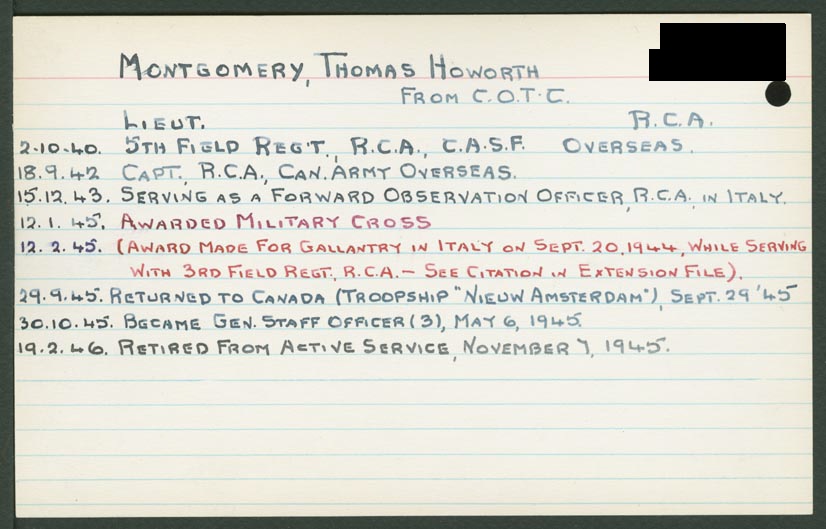 MONTGOMERY, THOMAS HOWORTH
FROM C.O.T.C.
LIEUT. R.C.A.
2-10-40. 5TH FIELD REG'T., R.C.A., C.A.S.F. OVERSEAS.
18.9.42 CAPT., R.C.A., CAN. ARMY OVERSEAS.
15.12.43. SERVING AS A FORWARD OBSERVATION OFFICER, R.C.A. IN ITALY.
12.1.45. AWARDED MILITARY CROSS
12.2.45. (AWARD MADE FOR GALLANTRY IN ITALY ON SEPT. 20, 1944, WHILE SERVING
WITH 3RD FIELD REGT., R.C.A. - SEE CITATION IN EXTENSION FILE).
29.9.45. RETURNED TO CANADA (TROOPSHIP "NIEUW AMSTERDAM"), SEPT. 29 '45
30.10.45. BECAME GEN. STAFF OFFICER (3), MAY 6, 1945.
19.2.46. RETIRED FROM ACTIVE SERVICE, NOVEMBER 7, 1945.